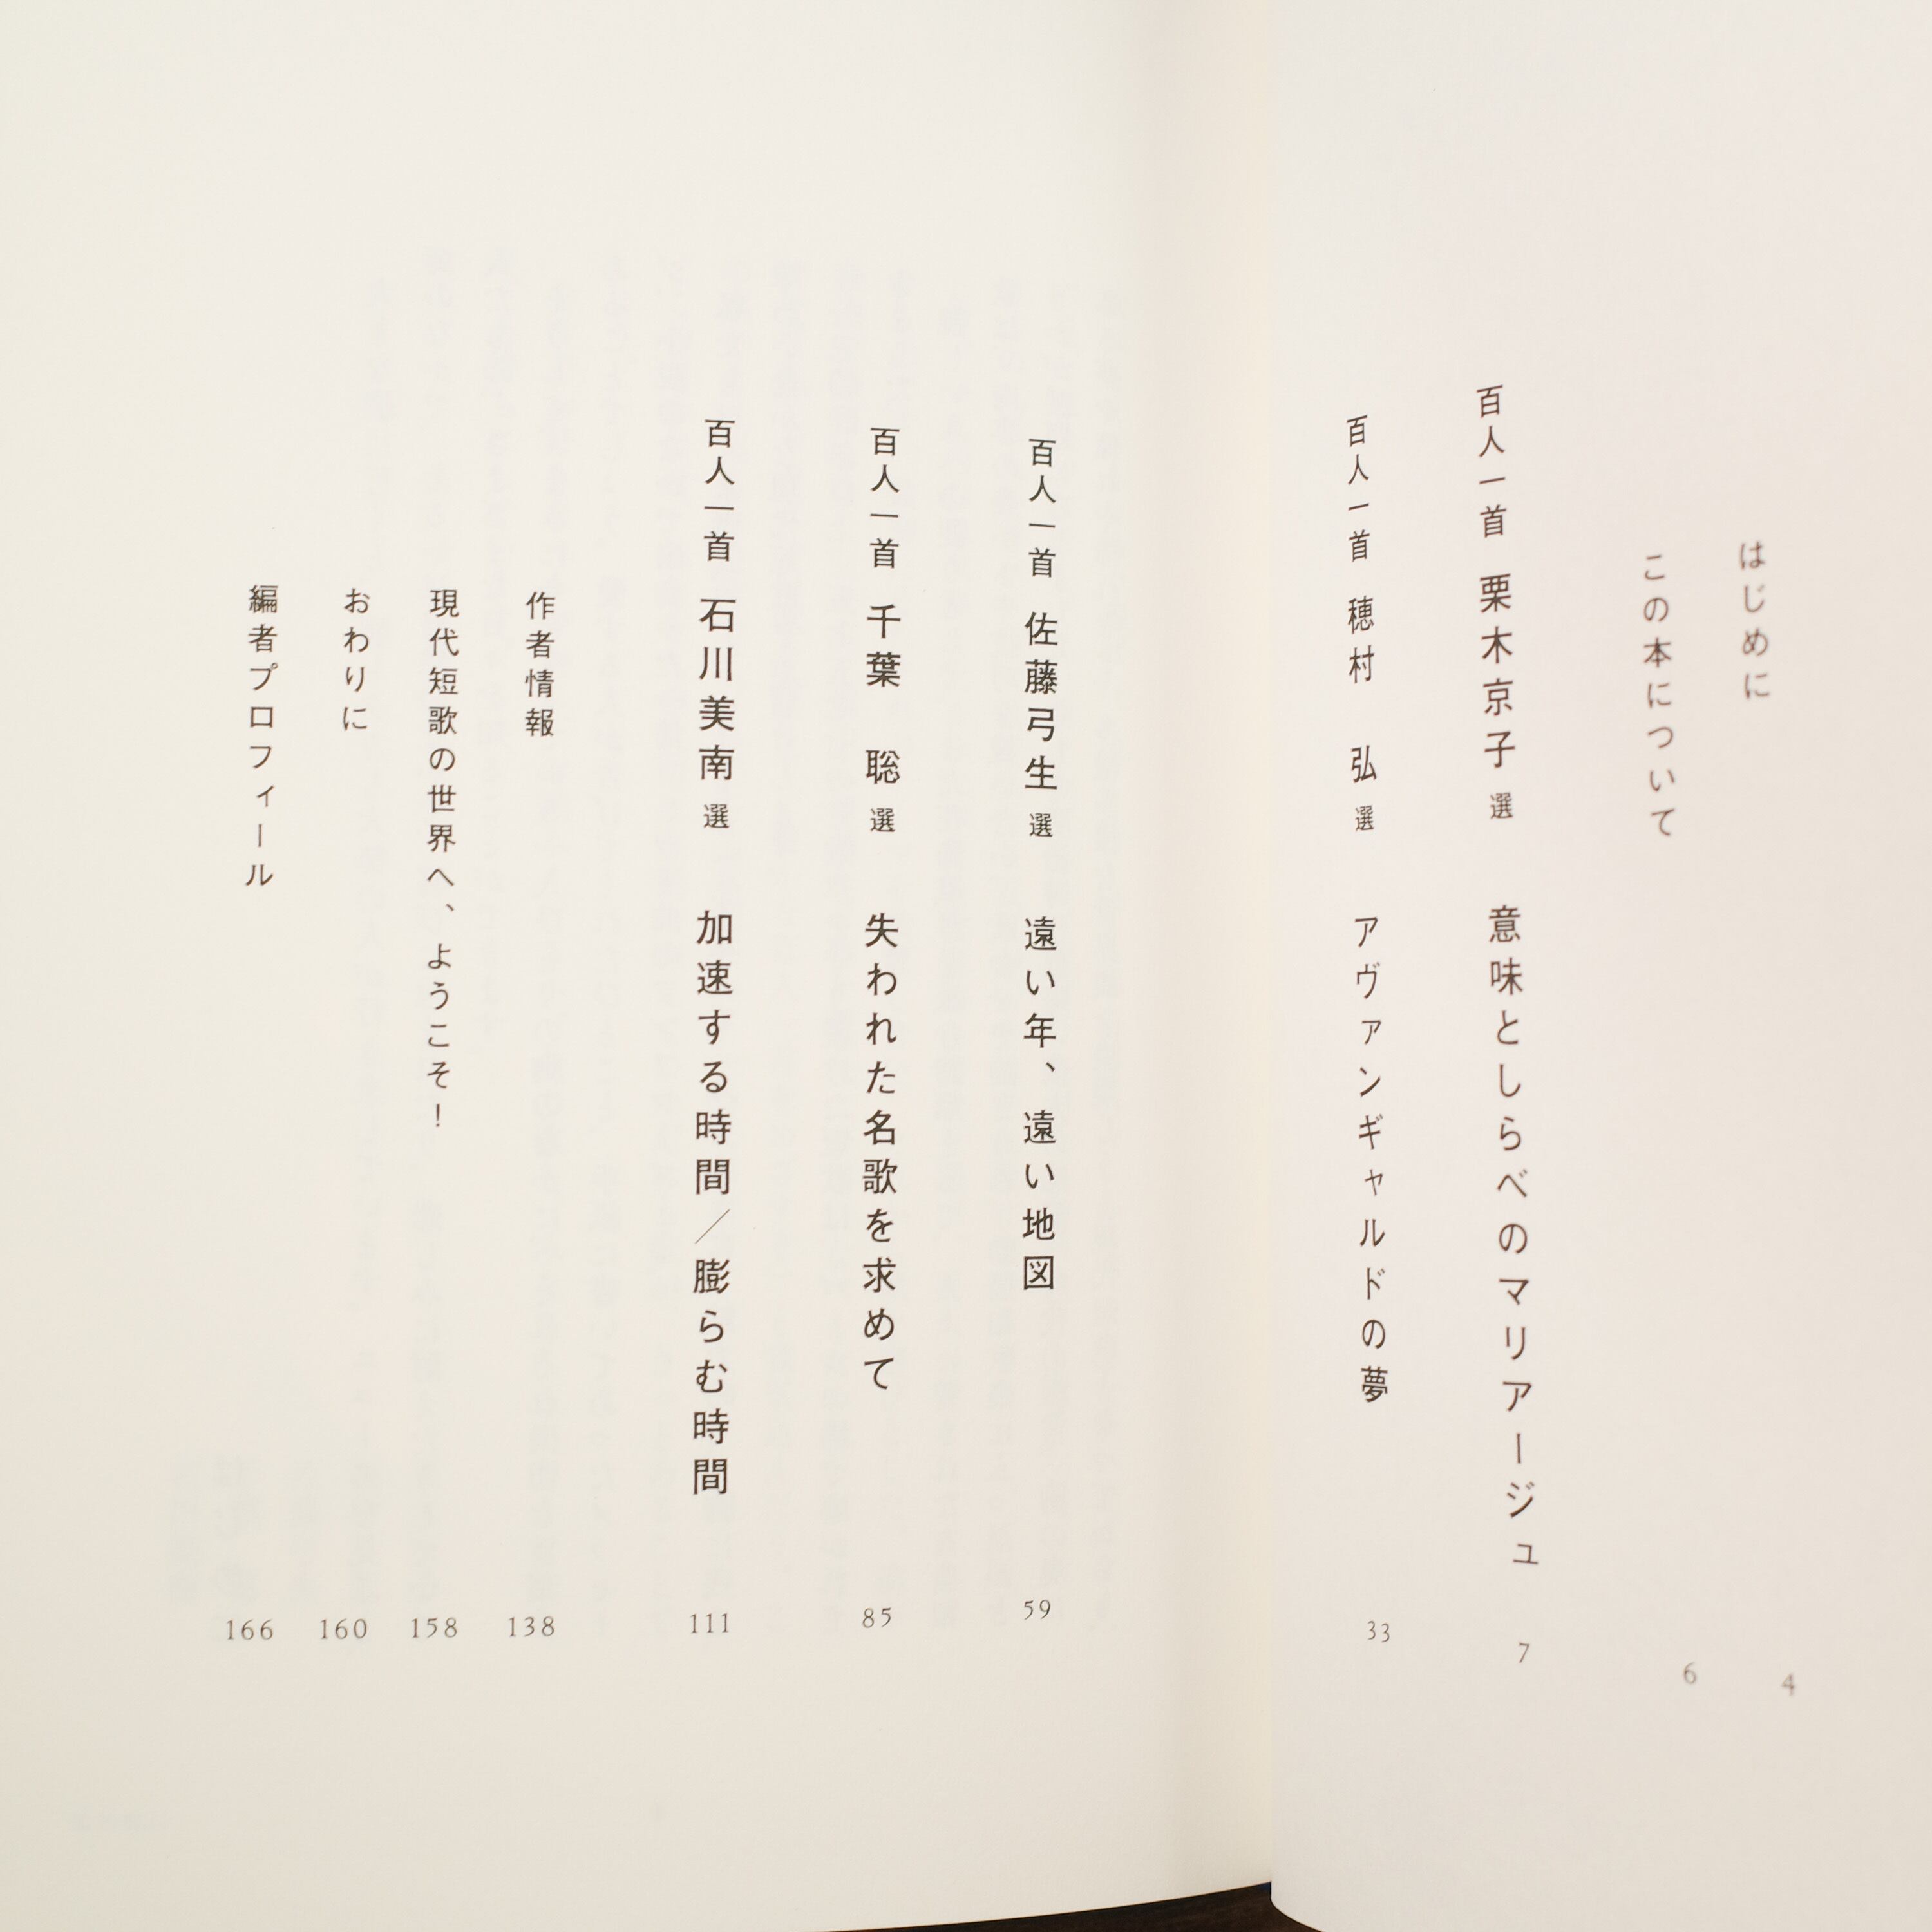 はじめに 4
この本について 6
百人一首 栗木京子 選 意味としらべのマリアージュ 7
百人一首 穂村 弘 選 アヴァンギャルドの夢 33
百人一首 佐藤弓生 選 遠い年、遠い地図 59
百人一首 千葉 聡 選 失われた名歌を求めて 85
百人一首 石川美南 選 加速する時間／膨らむ時間 111
作者情報 138
現代短歌の世界へ、ようこそ！ 158
おわりに 160
編者プロフィール 166